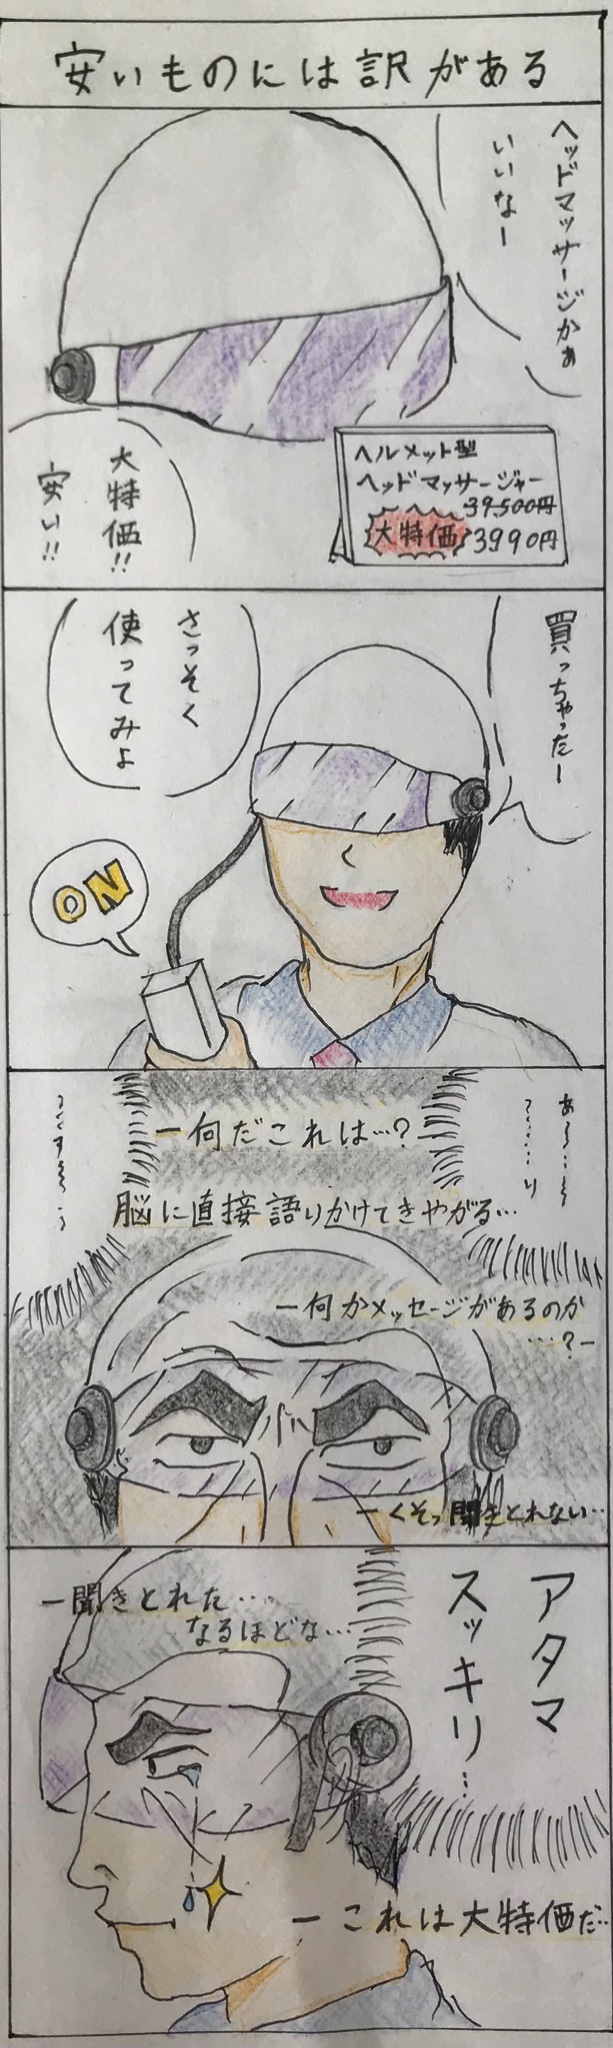 安いものには訳がある
ヘッドマッサージかぁ
いいなー
大特価!!
安い!!
ヘルメット型
ヘッドマッサージャー
39,500円
大特価 3990円
買っちゃったー
さっそく
使ってみよ
ON
ー何だこれは…?ー
脳に直接語りかけてきやがる…
ー何かメッセージがあるのか
…?ー
ーくそっ聞きとれない…
アタマ
スッキリ…
ー聞きとれた…
なるほどな…
ーこれは大特価だ…